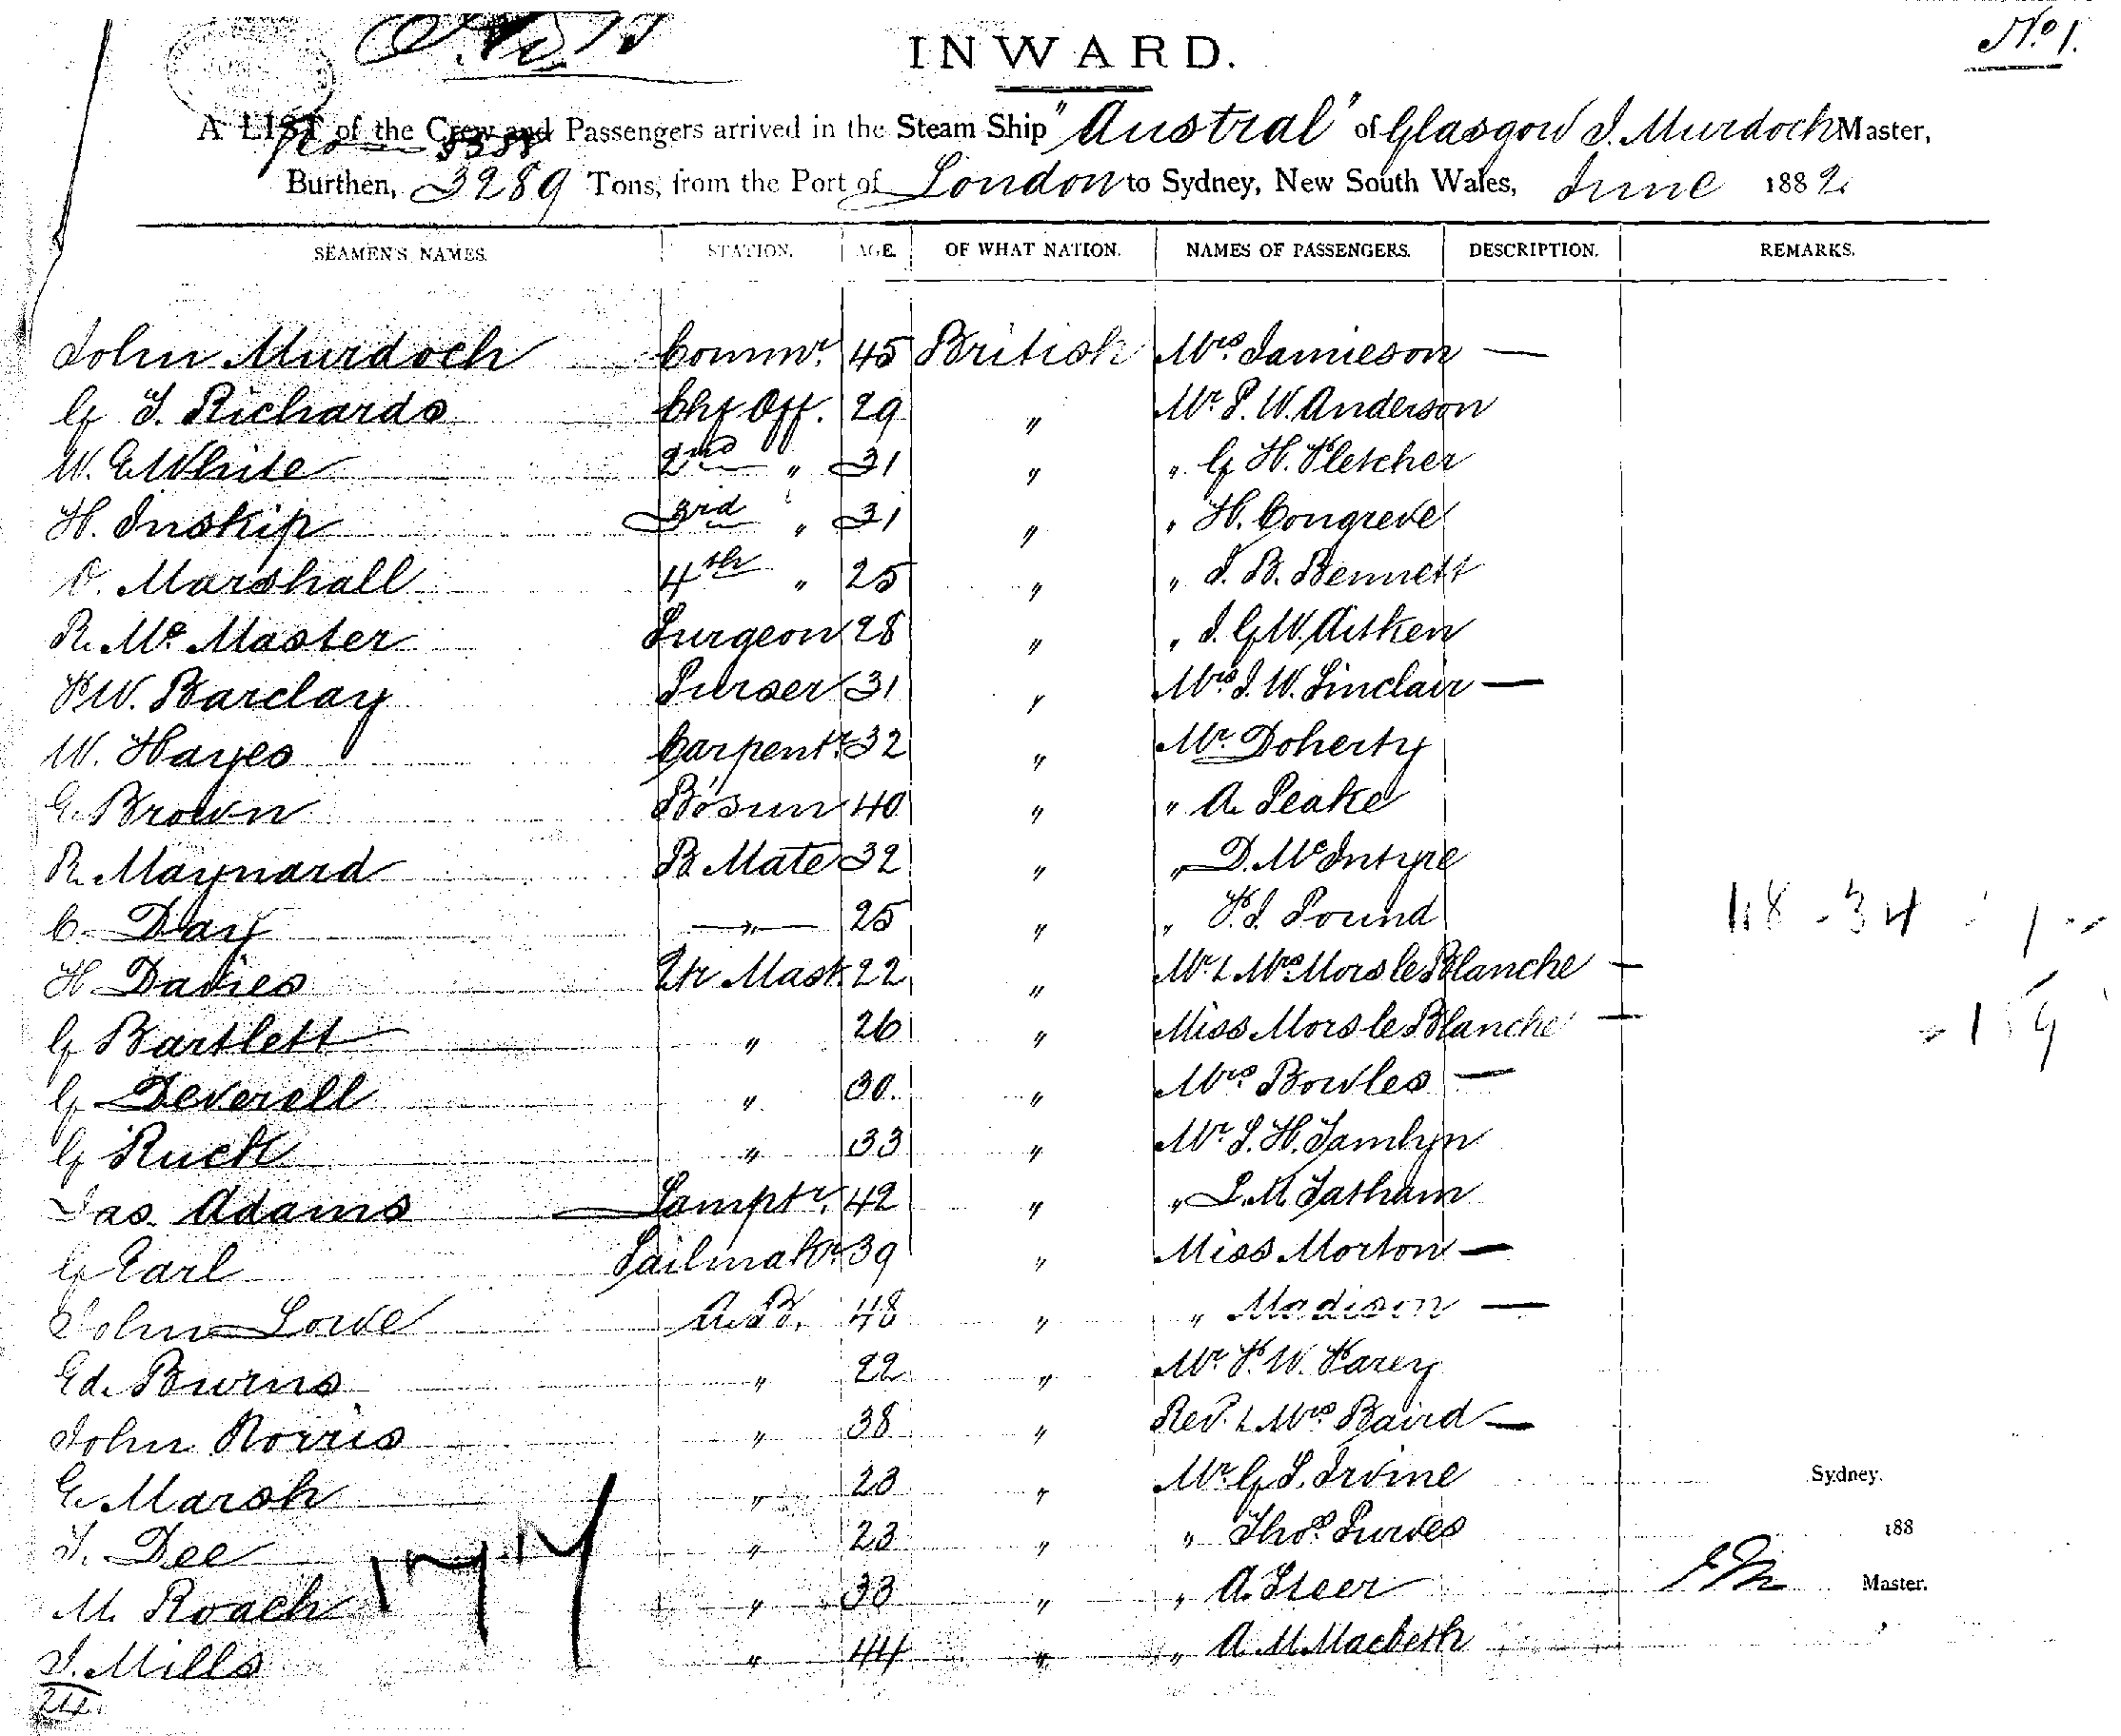 No. 1.
INWARD.
A LIST of the Crew and Passengers arrived in the Steam Ship "Austral" of Glasgow J. Murdoch Master,
Burthen, 3289 Tons, from the Port of London to Sydney, New South Wales, June 1882.
SEAMEN'S NAMES. STATION. AGE. OF WHAT NATION. NAMES OF PASSENGERS. DESCRIPTION. REMARKS.
John Murdoch Commr. 45 British Mrs Jamieson —
G T. Richards Chf Off. 29 " Mr. P. W. Anderson
W. E White 2nd " 31 " " G H. Fletcher
H. Inskip 3rd " 31 " " H. Congreve
Marshall 4th " 25 " " J. B. Bennett
R. Mc Master Surgeon 28 " " J. G W. Aitken
F W. Barclay Purser 31 " Mrs J. W. Sinclair —
W. Hayes Carpentr. 32 " Mr. Doherty
E. Brown Bosun 40 " " A. Peake
R. Maynard B Mate 32 " " D. McIntyre
C. Day —"— 25 " " F. J. Pound
H Davies Qtr Mast 22 " Mr. & Mrs. Mors le Blanche —
G Bartlett " 26 " Miss Mors le Blanche —
G Deverell " 30 " Mrs. Bowles —
G Ruck " 33 " Mr. S. H. Tamlyn
Jas. Adams Lamptr. 42 " " L. M. Tatham
G Earl Sailmakr. 39 " Miss Morton —
John Lowe A.B. 48 " " Madison —
Ed. Burns " 22 " Mr. F. W. Farey
John Norris " 38 " Rev. & Mrs. Baird —
E. Marsh " 23 " Mr. G S. Irvine Sydney.
T. Dee " 23 " " Thos. Purves 188
M. Roach " 33 " " A. Steer Master.
J. Mills " 44 " " A. M. Macbeth
24